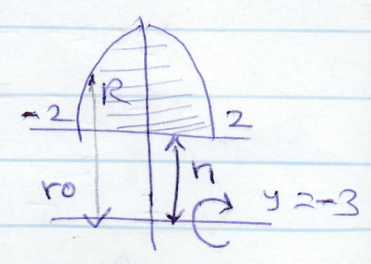 R
-2 2
ro r1
y = -3